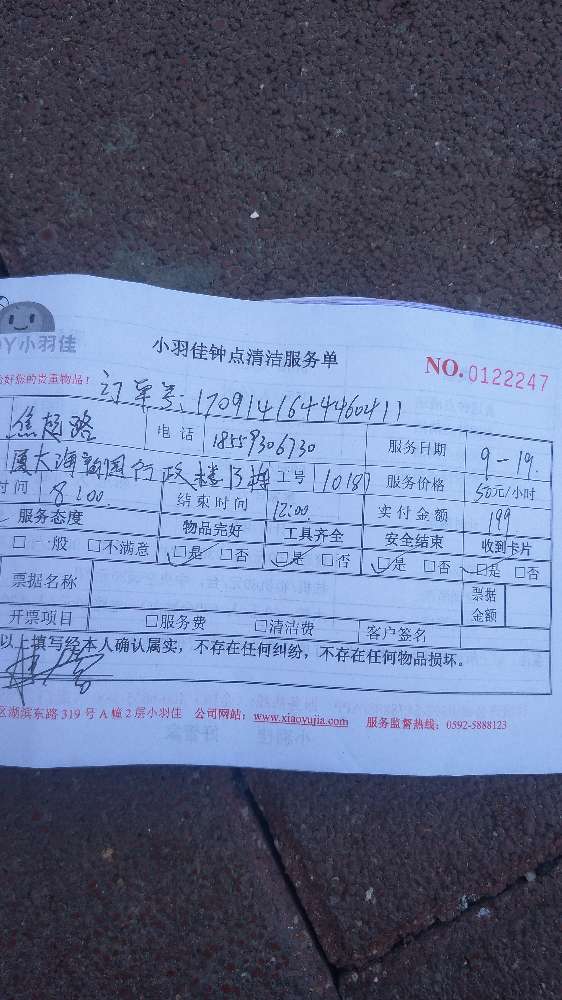 小羽佳
小羽佳钟点清洁服务单
NO.0122247
好您的贵重物品！
订单号:1709141644460411
电话 18559306730 服务日期 9-19.
工号 10187 服务价格 50元/小时
时间 8:00 结束时间 12:00 实付金额 199
服务态度 物品完好 工具齐全 安全结束 收到卡片
□一般 □不满意 □是 □否 □是 □否 □是 □否 □是 □否
票据名称 票据金额
开票项目 □服务费 □清洁费 客户签名
以上填写经本人确认属实，不存在任何纠纷，不存在任何物品损坏。
区湖滨东路 319 号 A 幢 2 层小羽佳 公司网站：www.xiaoyujia.com 服务监督热线：0592-5888123